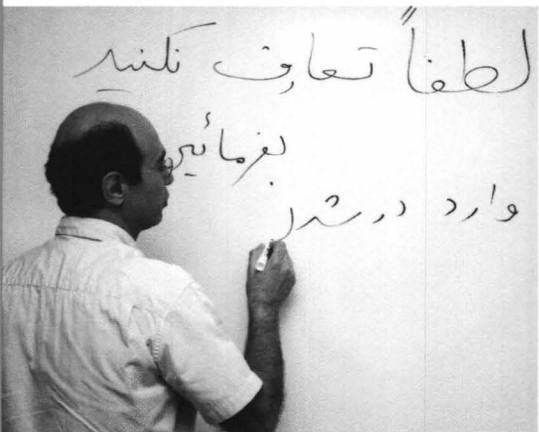 لطفاً تعارف نکنید
بفرمائید
وارد در شدن